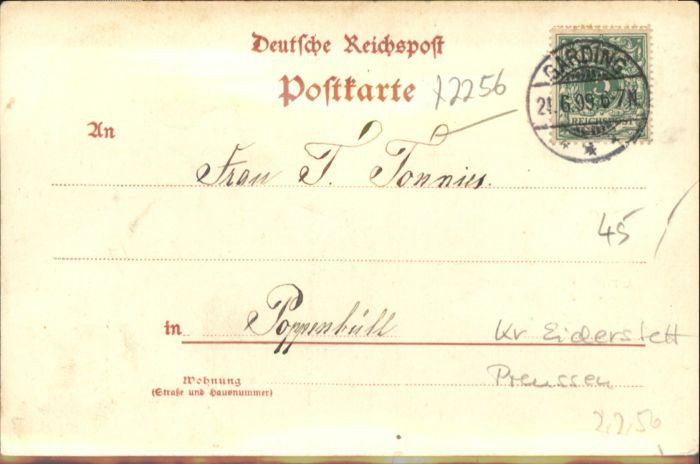 Deutsche Reichspost
Postkarte
12256
GARDING
21.6.99.6-7N.
REICHSPOST
An
Frau T. Tonnies.
45
in Poppenbüll
Kr Eiderstett
Wohnung
(Straße und Hausnummer)
Preussen
2,2,50